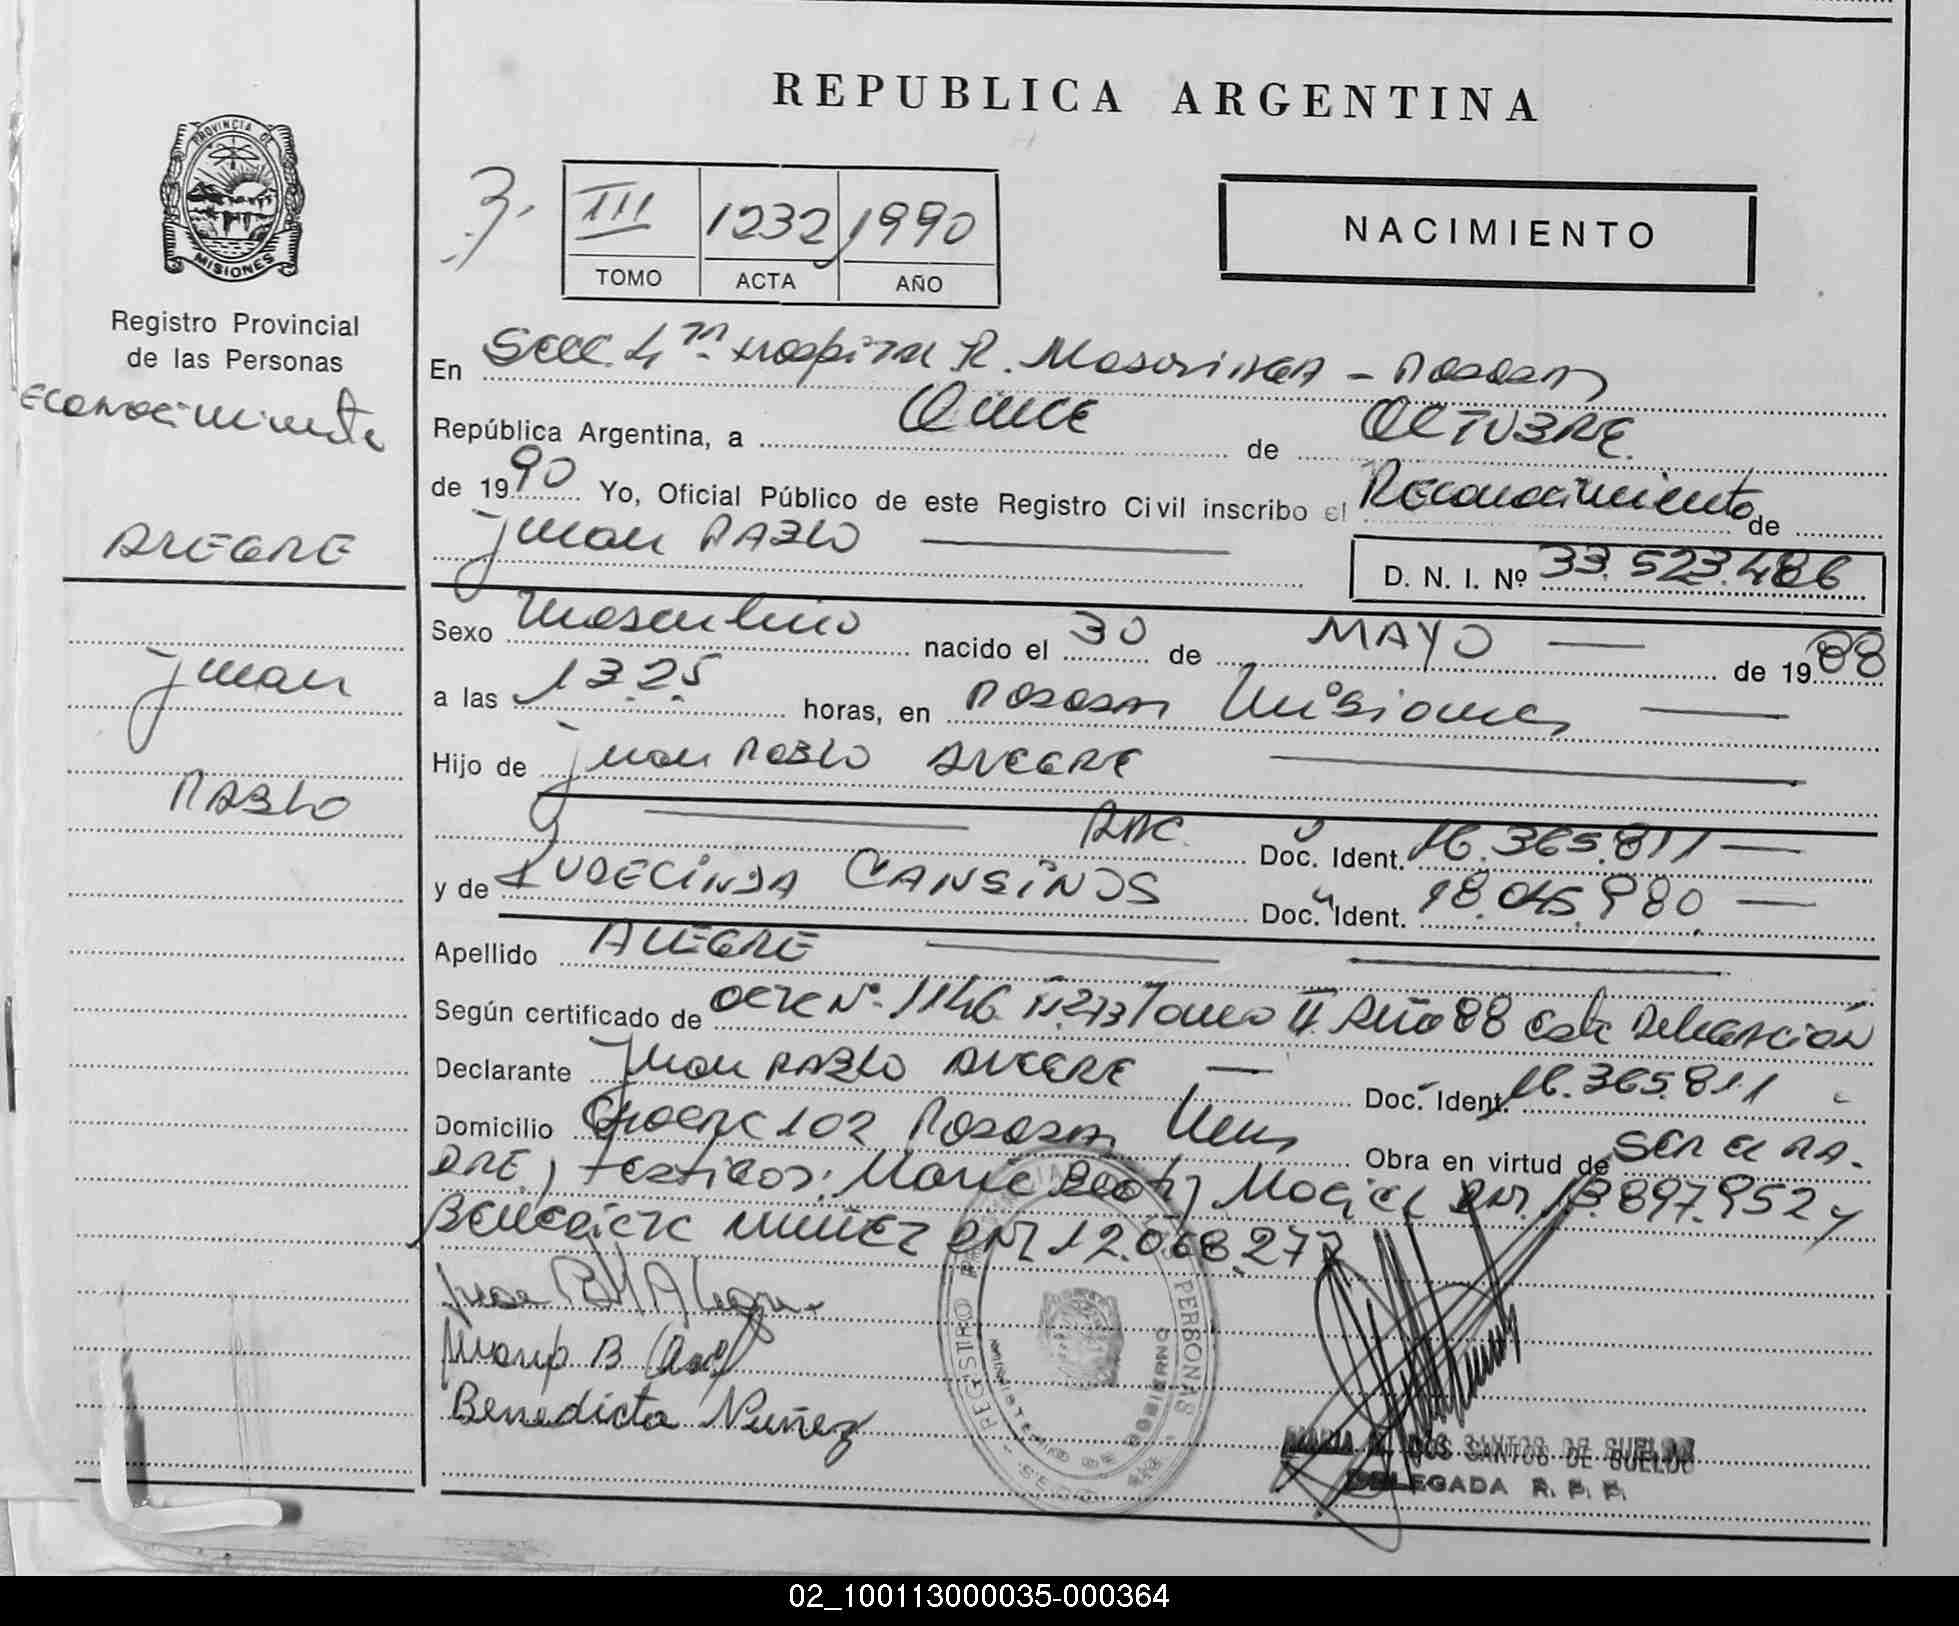 REPUBLICA ARGENTINA
PROVINCIA DE
MISIONES
Registro Provincial
de las Personas
III 1232 1990
TOMO ACTA AÑO
NACIMIENTO
En Secc. 4ta Hospital R. Madariaga - Posadas
República Argentina, a Quince de OCTUBRE
de 1990 Yo, Oficial Público de este Registro Civil inscribo el Reconocimiento de
Juan PABLO D. N. I. Nº 33.523.486
Sexo Masculino nacido el 30 de MAYO de 1988
a las 13.25 horas, en Posadas Misiones
Hijo de Juan PABLO ALEGRE
Doc. Ident. 16.365.811
y de LUDECINDA CANSINOS Doc. Ident. 18.045.980
Apellido ALEGRE
Según certificado de acta Nº 1146 Tomo II Año 88 esta Delegación
Declarante Juan PABLO ALEGRE Doc. Ident. 16.365.811
Domicilio 102 Posadas Obra en virtud de ser el PA-
DRE, testigos: Maria Beatriz Maciel DNI 13.897.952 y
Benedicta NUÑEZ DNI 12.068.277
Juan Alegre
B
Benedicta Nuñez
REGISTRO PERSONAS
MINISTERIO DE GOBIERNO
DOS SANTOS DE SUELDO
DELEGADA R. P. P.
econocimiento
ALEGRE
Juan
PABLO
02_100113000035-000364